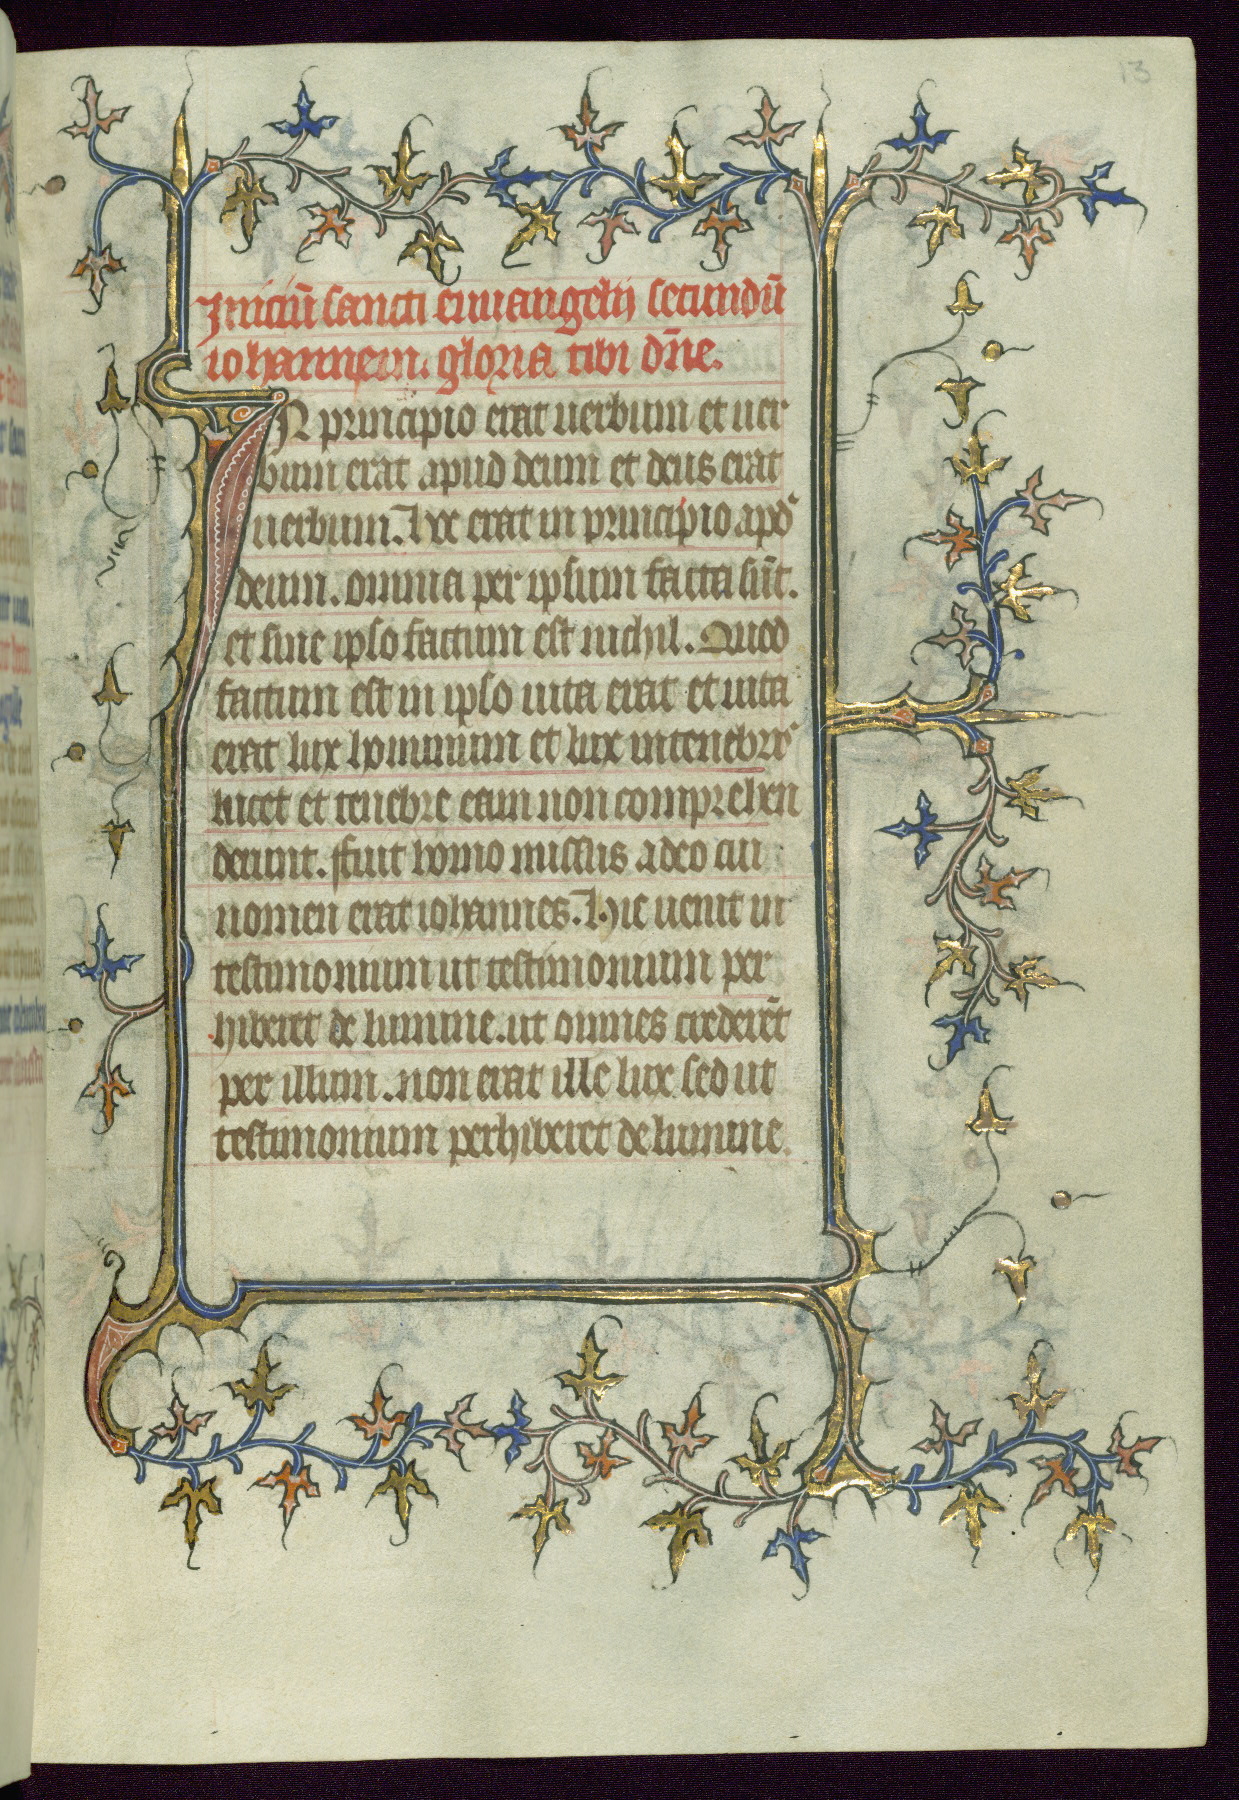 13
Iniciū sancti euuangelii secundū
iohannem. gloria tibi dn̄e.
IN principio erat uerbum et uer
bum erat apud deum et deus erat
uerbum. Hoc erat in principio apd̛
deum. omnia per ipsum facta sūt.
et sine ipso factum est nichil. Quod
factum est in ipso uita erat et uita
erat lux hominum et lux in tenebris
lucet et tenebre eam non comprehen
derunt. ffuit homo missus a deo cui
nomen erat iohannes. Hic uenit in
testimonium ut testimonium per
hiberet de lumine. ut omnes crederēt
per illum. non erat ille lux sed ut
testimonium perhiberet de lumine